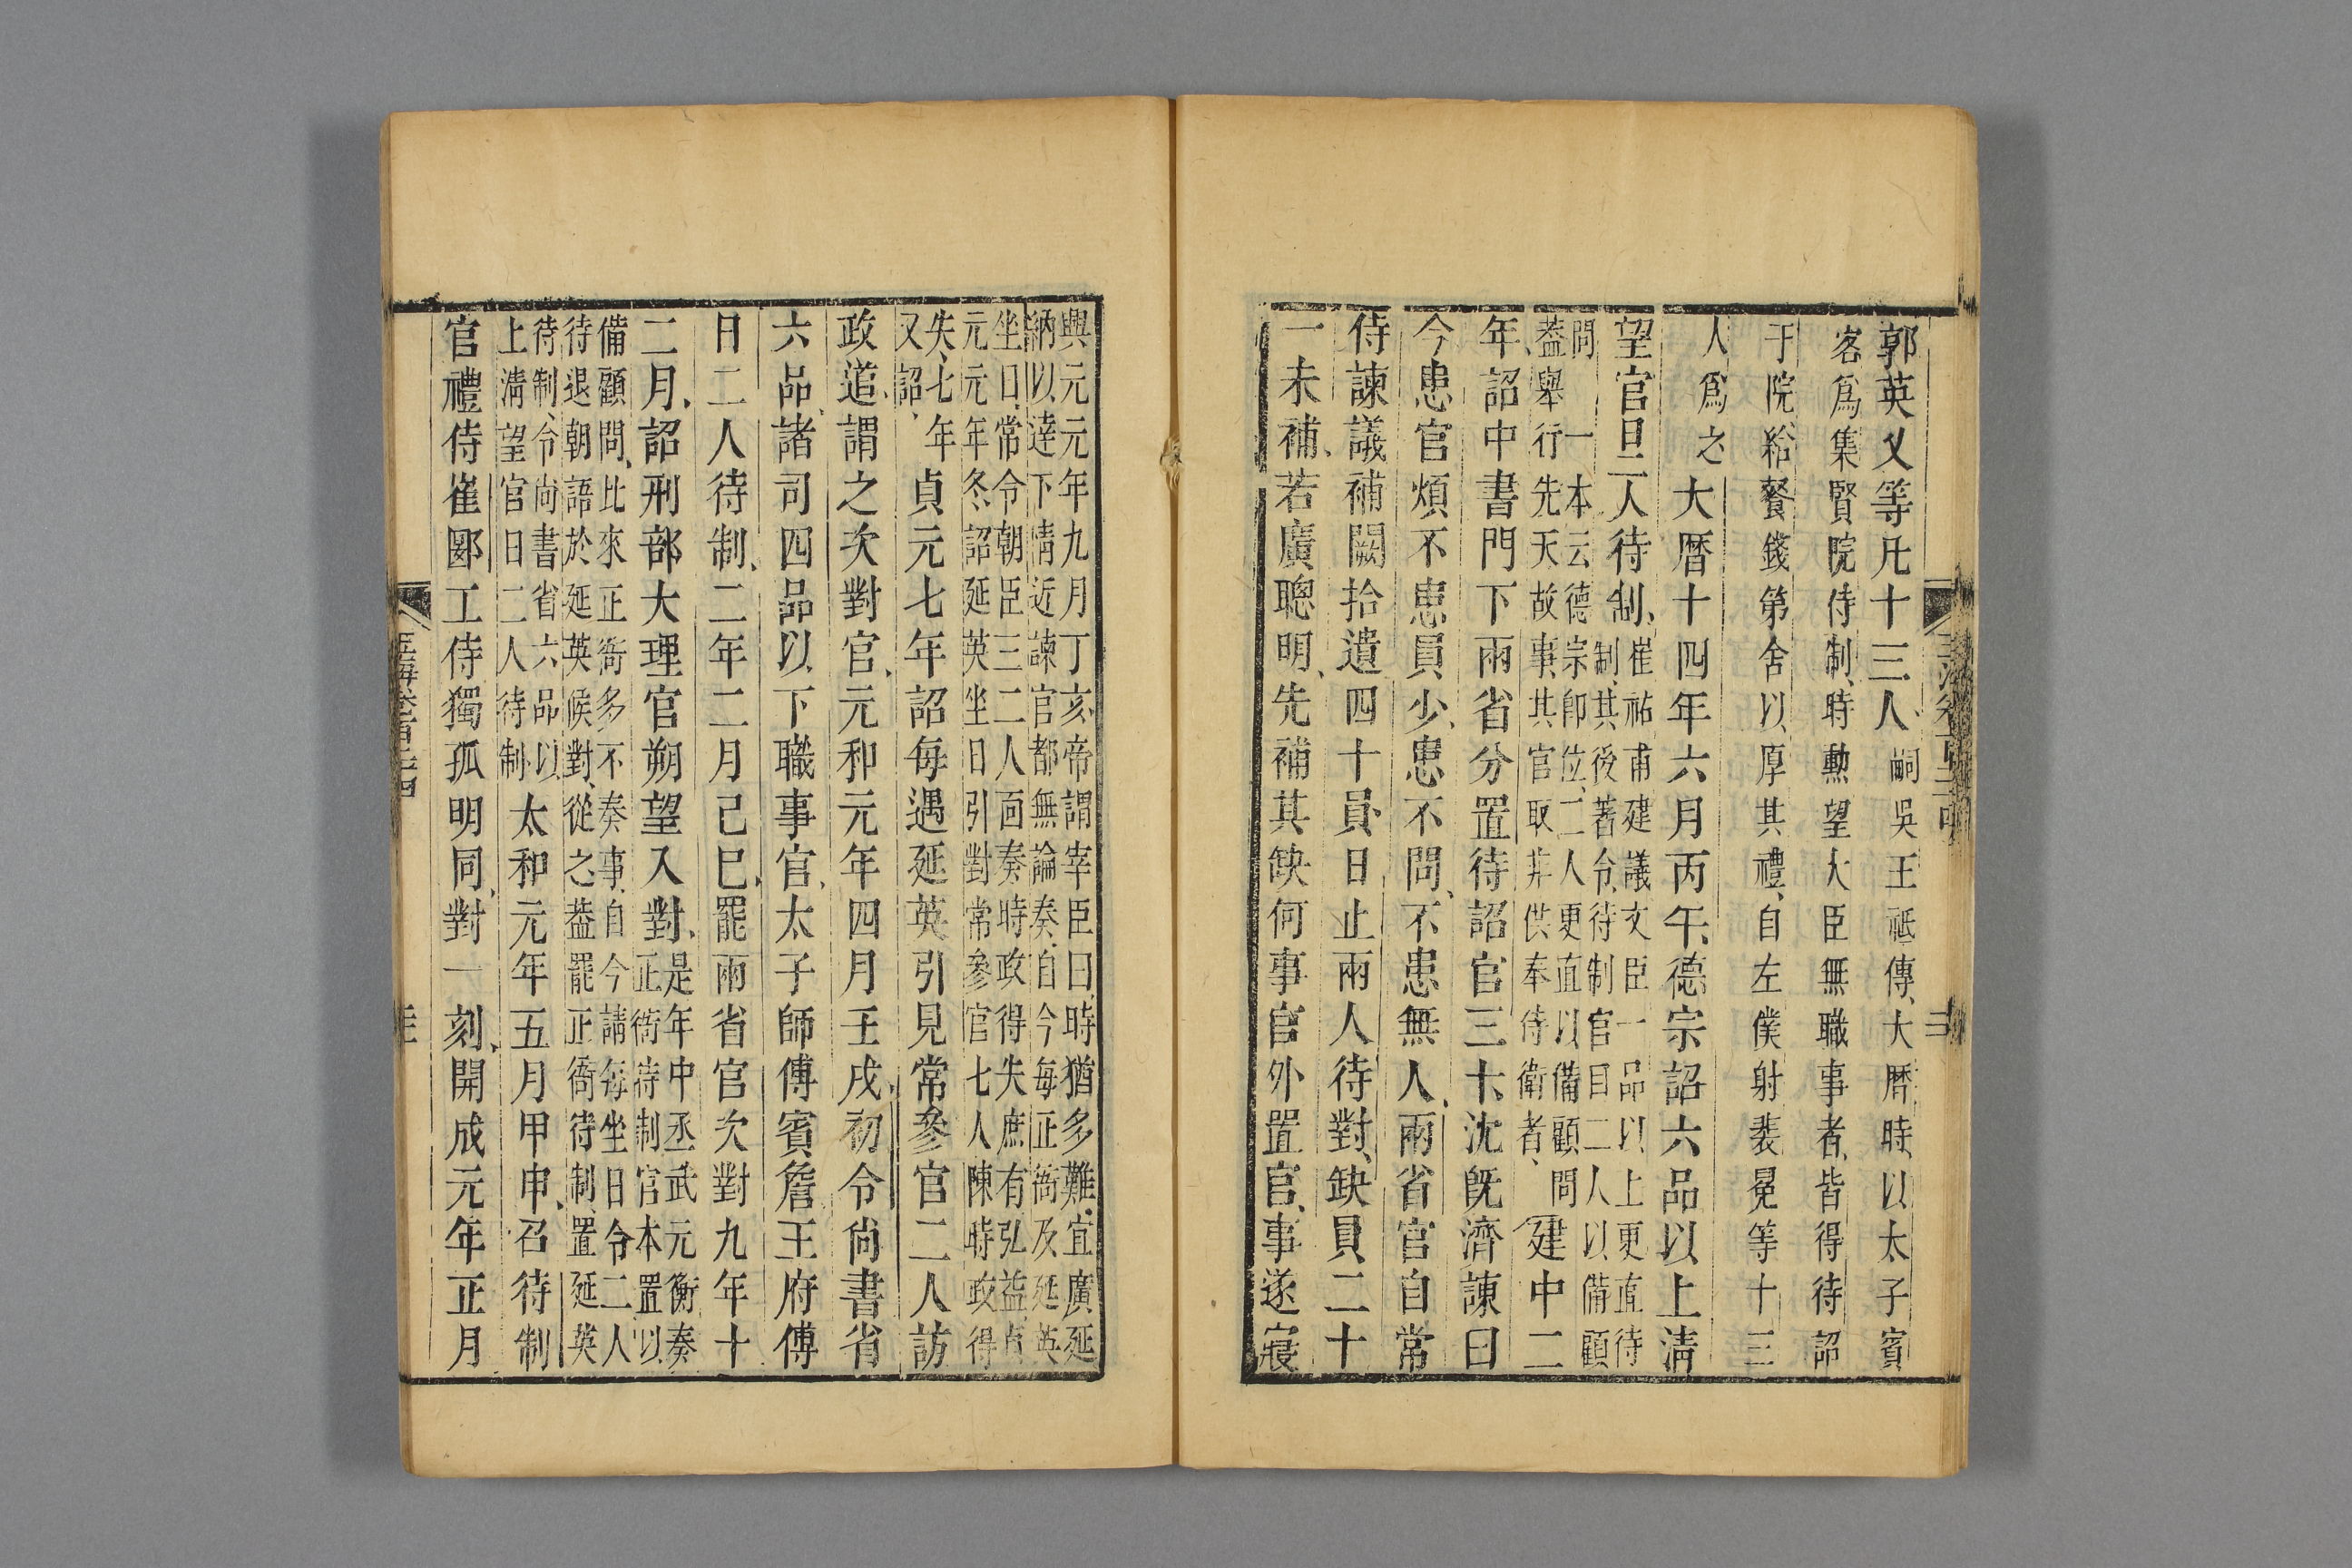 郭英乂等凡十三人嗣吳王祗傳大曆時以太子賓
客爲集賢院待制時勲望大臣無職事者皆得待詔
于院給餐錢第舍以厚其禮自左僕射裴冕等十三
人爲之大曆十四年六月丙午德宗詔六品以上淸
望官日二人待制崔祐甫建議文臣一品以上更直待
制其後著令待制官日二人以備顧
問一本云德宗卽位二人更直以備顧問
葢舉行先天故事其官取非供奉侍衛者建中二
年詔中書門下兩省分置待詔官三十沈旣濟諫曰
今患官煩不患員少患不問不患無人兩省官自常
侍諫議補闕拾遺四十員日止兩人待對缺員二十
一未補若廣聰明先補其缺何事官外置官事遂寢
興元元年九月丁亥帝謂宰臣曰時猶多難宜廣延
納以達下情近諫官都無論奏自今每正衙及延英
坐日常令朝臣三二人面奏時政得失庶有弘益貞
元元年冬詔延英坐日引對常參官七人陳時政得
失七年
又詔貞元七年詔每遇延英引見常參官二人訪
政道謂之次對官元和元年四月壬戌初令尙書省
六品諸司四品以下職事官太子師傅賓詹王府傅
日二人待制二年二月己巳罷兩省官次對九年十
二月詔刑部大理官朔望入對是年中丞武元衡奏
正衙待制官本置以
備顧問比來正衙多不奏事自今請每坐日令二人
待退朝語於延英候對從之葢罷正衙待制置延英
待制令尙書省六品以
上淸望官日二人待制太和元年五月甲申召待制
官禮侍崔郾工侍獨孤明同對一刻開成元年正月
玉海卷百六十四